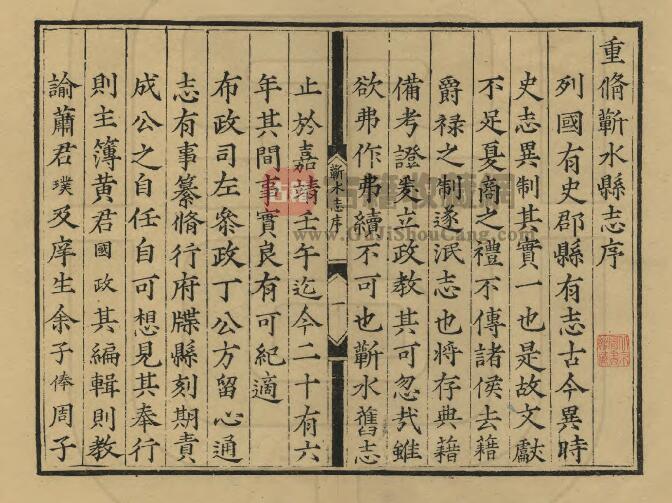 重脩蘄水縣志序
列國有史郡縣有志古今異時
史志異制其實一也是故文獻
不足夏商之禮不傳諸侯去籍
爵禄之制遂泯志也將存典籍
備考證奚立政教其可忽㢤雖
欲弗作弗續不可也蘄水舊志
蘄水志序
一
止於嘉靖壬午迄今二十有六
年其間事實良有可紀適
布政司左叅政丁公方留心通
志有事纂脩行府牒縣刻期責
成公之自任自可想見其奉行
則主簿黄君國政其編輯則教
諭蕭君璞及庠生余子俸周子
www.GuJiShouCang.com